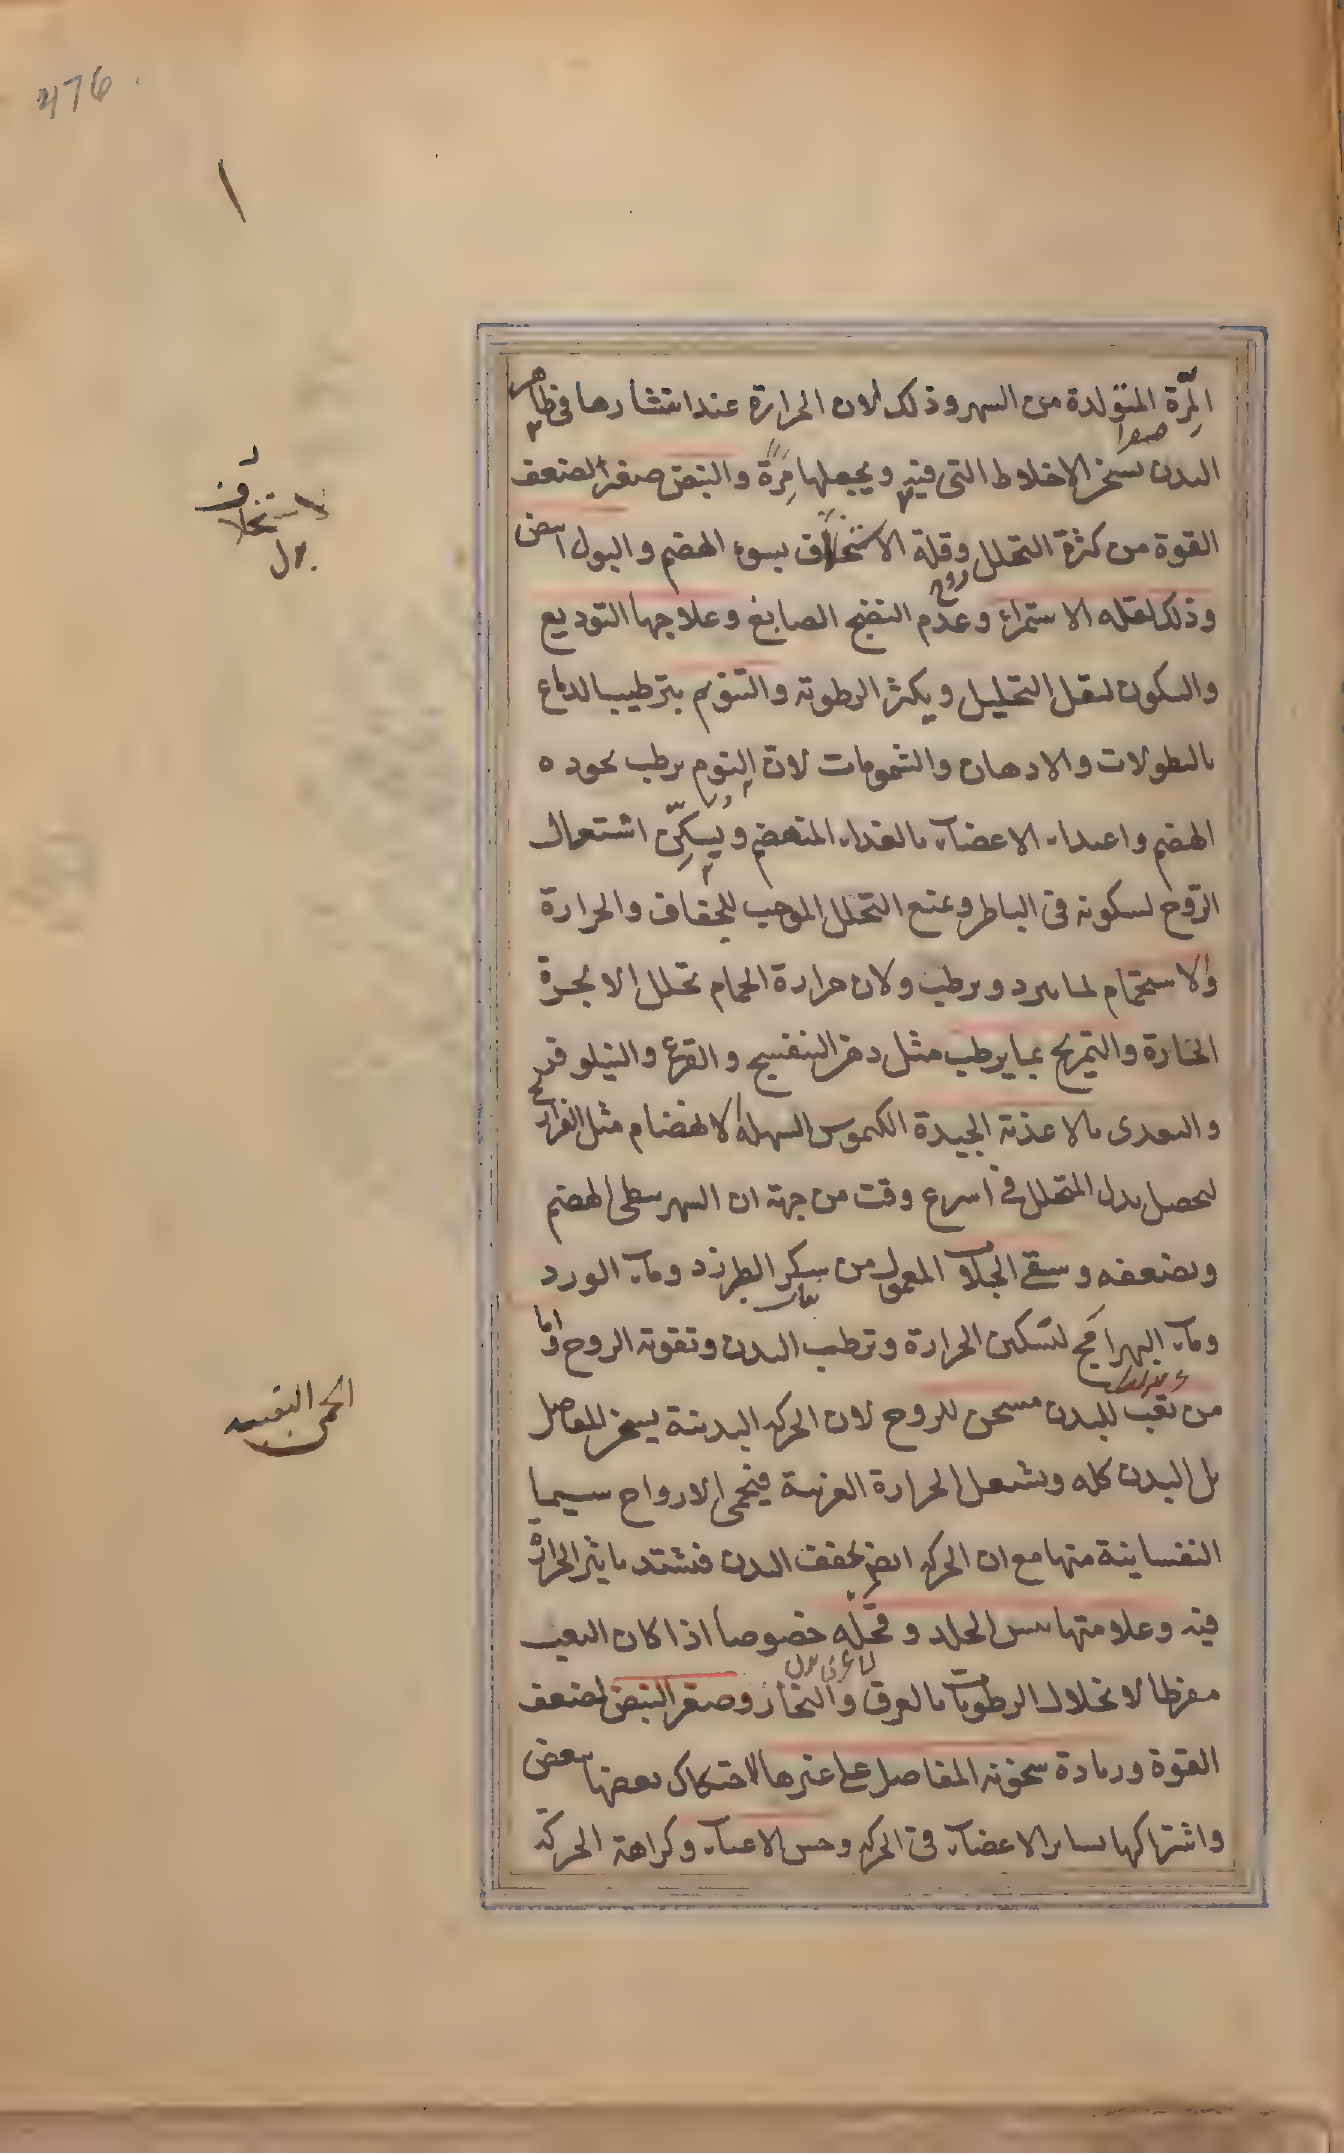 476
المِرّة المتولدة من السهر وذلك لان الحرارة عند انتشارها فى ظاهر
صفرا
البدن تسخن الاخلاط التى فيه ويجعلها مِرَّة والنبض صغير الضعف
القوة من كثرة التحلل وقلة الاستخلاف بسوء الهضم والبول ابيض
وذلك لقله الاستمراء وعدم النضج الصابغ وعلاجها التوديع
والسكون ليقل التحليل ويكثر الرطوبة والتنويم بترطيب الدماغ
بالنطولات والادهان والشمومات لان النوم يرطب بجوده
الهضم واعداء الاعضآء بالغداء المنهضم ويُسكِّن اشتعال
الرّوح لسكونه فى الباطن ويمنع التحلل الموجب للجفاف والحرارة
والاستحمام لما يبرد ويرطب ولان حرارة الحمام تحلل الابخرة
الحارة والتمريخ بما يرطب مثل دهن البنفسج والقرع والنيلوفر
والتغذى بالاغذية الجيدة الكيموس السهلة الانهضام مثل الفراريج
ليحصل بدل المتحلل فى اسرع وقت من جهة ان السهر يبطى الهضم
ويضعفه وسقى الجلاب المعمول من سكر الطبرزد ومآء الورد
ومآء البهرامج لتسكين الحرارة وترطيب البدن وتقوية الروح واما
من تعب للبدن مسخن للروح لان الحركة البدنية يسخن المفاصل
بل البدن كله ويشعل الحرارة الغريبة فيحمى الارواح سيما
النفسانية منها مع ان الحركة ايضا يجفف البدن فيشتد تاثير الحرارة
فيه وعلامتها يبس الجلد وقحله خصوصا اذا كان التعب
مفرطا لانحلال الرطوبات بالعرق والبخار وصغر النبض لضعف
القوة وزيادة سخونة المفاصل على غيرها لاحتكاك بعضها ببعض
واشتراكها لساير الاعضآء فى الحركة وحس الاعيآء وكراهة الحركة
استخلاف
بدل
الحمى التعبيه